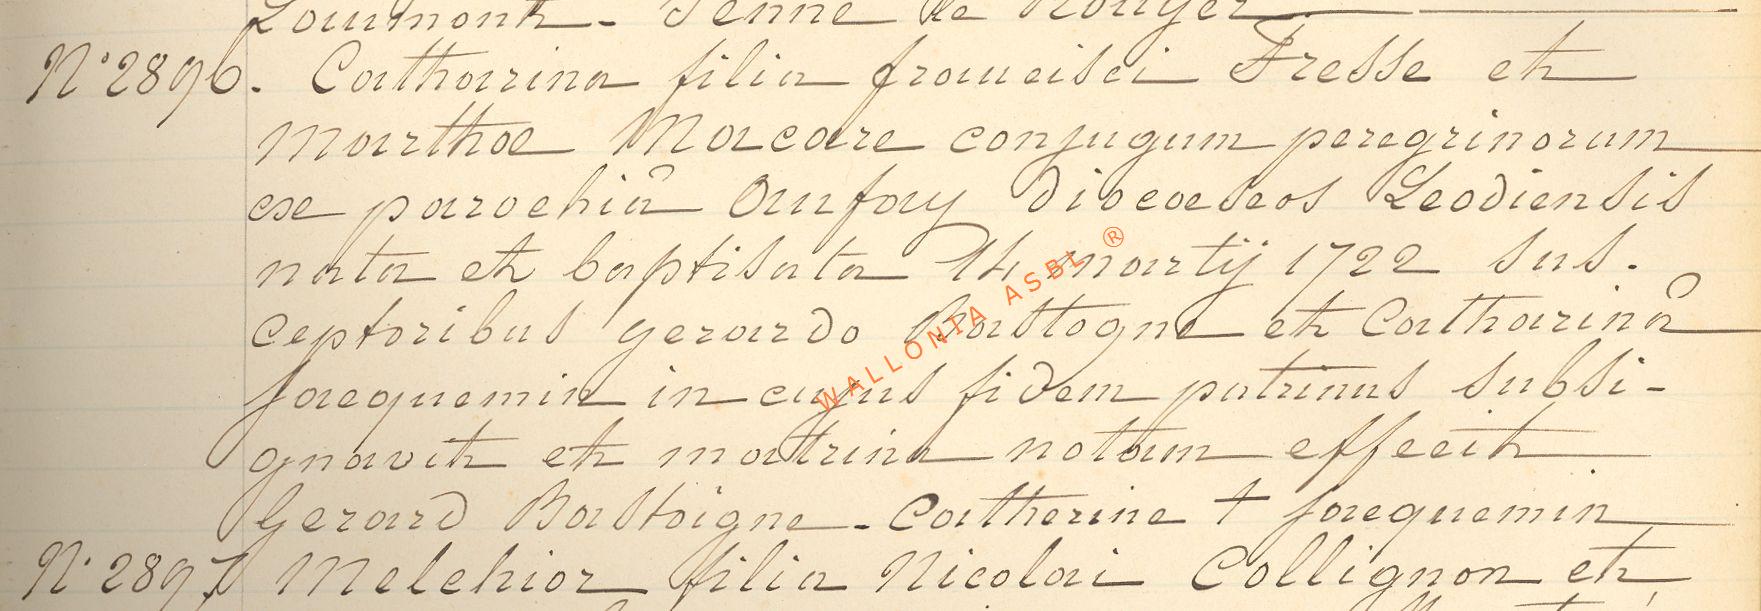 Loummont - Jenne le Rouyer
N° 2896. Catharina filia francisci Fresse et
marthae Macare conjugum peregrinorum
ex parochiâ Amfay dioecaeseos Leodiensis
nata et baptisata 14 martij 1722 sus.
ceptoribus gerardo Bastogne et Catharinâ
jacquemin in cujus fidem patrinus subsi-
gnavit et matrina notam effecit
Gerard Bastoigne - Catherine + jacquemin
N° 2897 Melchior filia Nicolai Collignon et
WALLONIA ASBL ®